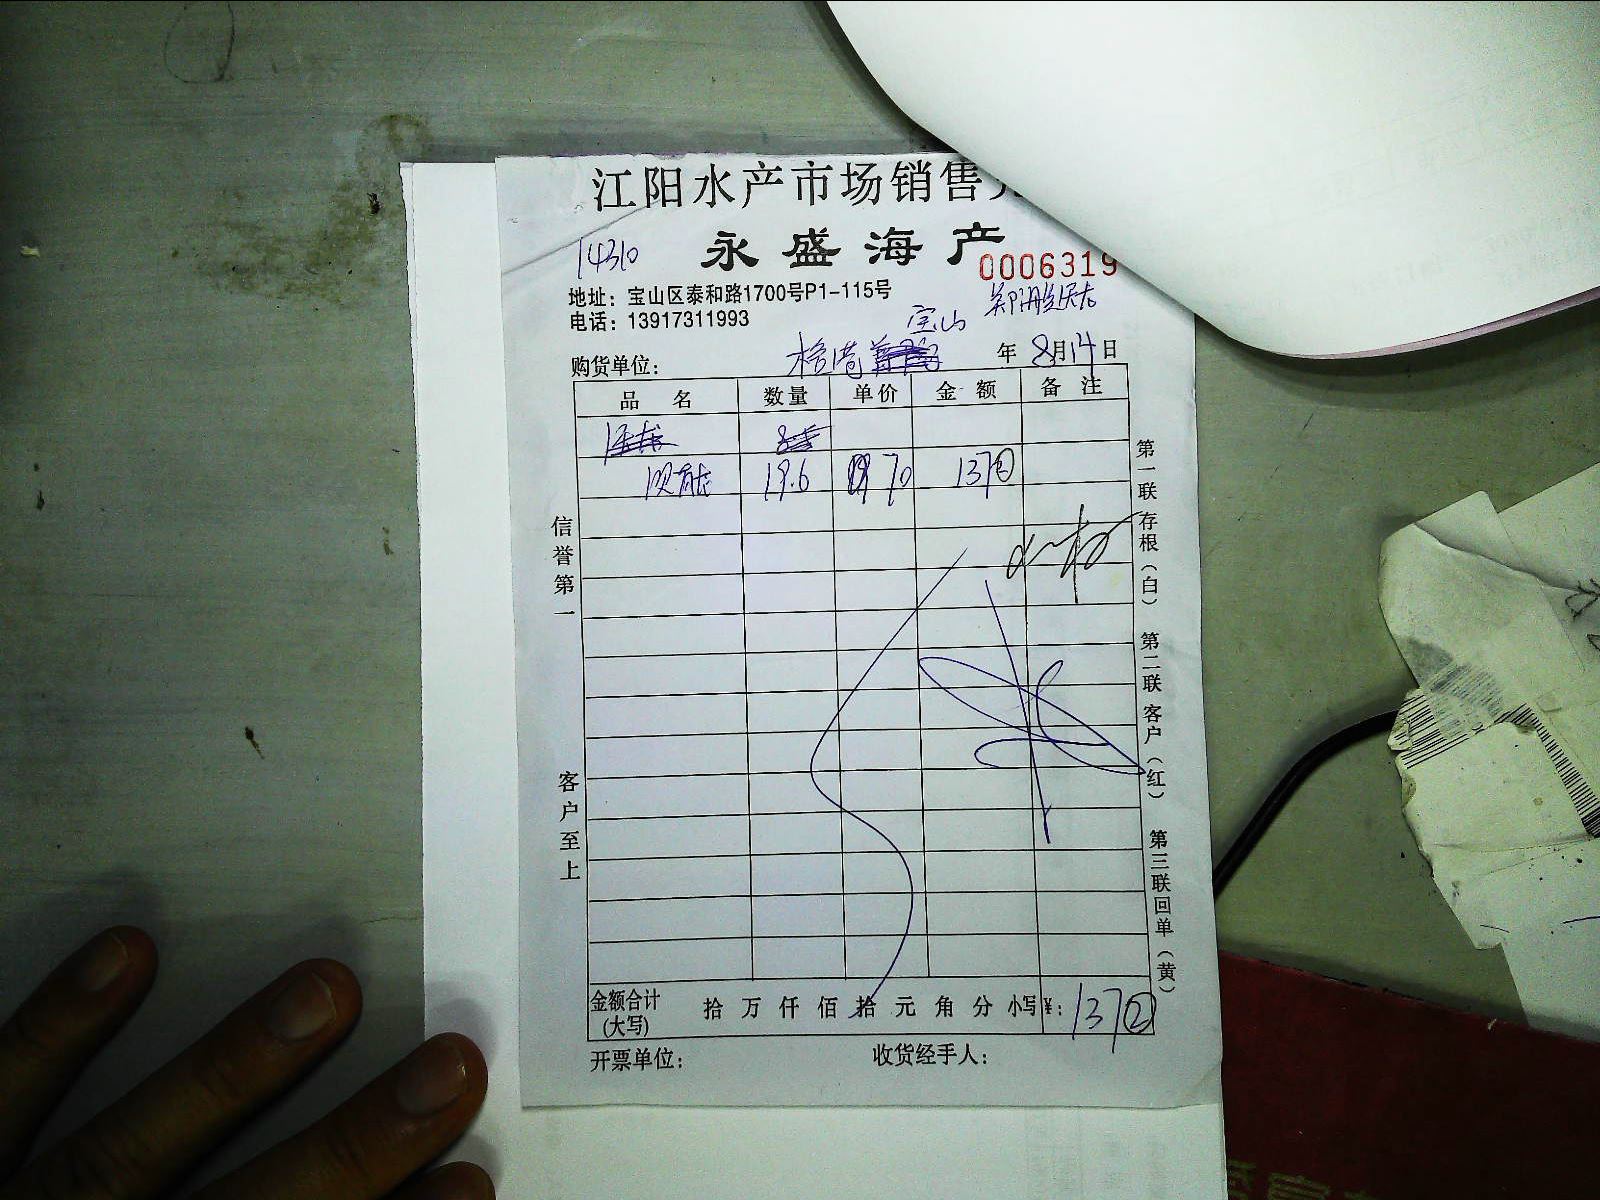 江阳水产市场销售
永盛海产
14310
0006319
地址：宝山区泰和路1700号P1-115号
电话：13917311993
宝山
购货单位：
年 8月14日
品名 数量 单价 金额 备注
19.6 70 1372
信誉第一
客户至上
第一联存根（白）
第二联客户（红）
第三联回单（黄）
金额合计(大写) 拾 万 仟 佰 拾 元 角 分 小写¥：1372
开票单位： 收货经手人：